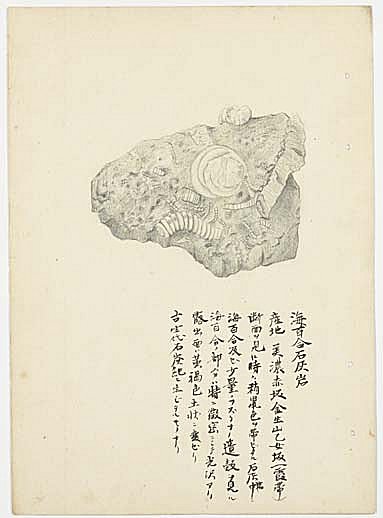 海百合石灰岩
産地 美濃赤坂金生山乙女坂(霞帯)
断面ヲ見ル時ハ稍黒色ヲ帯ビタル石灰岩ニ
海百合及ビ少量ノ 遺殻ヲ見ル
海百合ノ部分ハ特ニ緻密ニシテ光沢アリ
露出面ハ黄褐色土状ニ変ゼリ
古生代石炭紀ニ生ゼシモノナリ